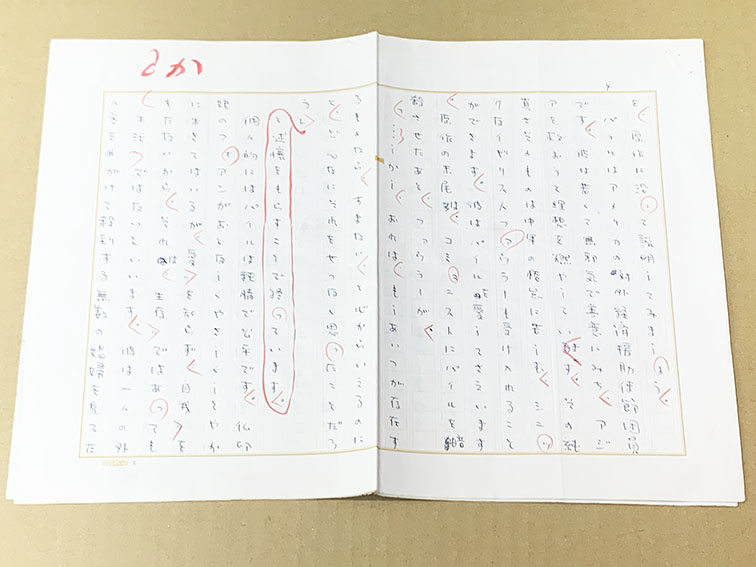 とか
4
を、原作に沿って説明してみましょう。
パイルはアメリカの対外経済援助使節団員
です。彼は若くて無邪気で善意にみち、アジ
アを救おうと理想を燃やしています。その純
真さそのものは中年の倦怠に苦しむ、シニッ
クなイギリス人ファウラーも受け入れること
ができます。彼はパイルを愛してさえいます
、原作の末尾は、コミュニストにパイルを暗
殺させたあと、ファウラーが、
「……しかし、おれは、もしあいつが存在す
るものなら、すまない、と心からいえるのに
と、どんなにそれをせつなく思ったことだろ
う」
と述懐をもらすことで終っています。
個人的にはパイルは純情で公平です。仏印
娘のフォアンがおとなしくやさしくしとやか
に生きてはいるが〈愛〉を知らず、自我を
もたないから、それは〈生存〉ではあっても
〈生活〉ではないといいます。彼は一人の外
人客をめがけて殺到する無数の娼婦を見てた